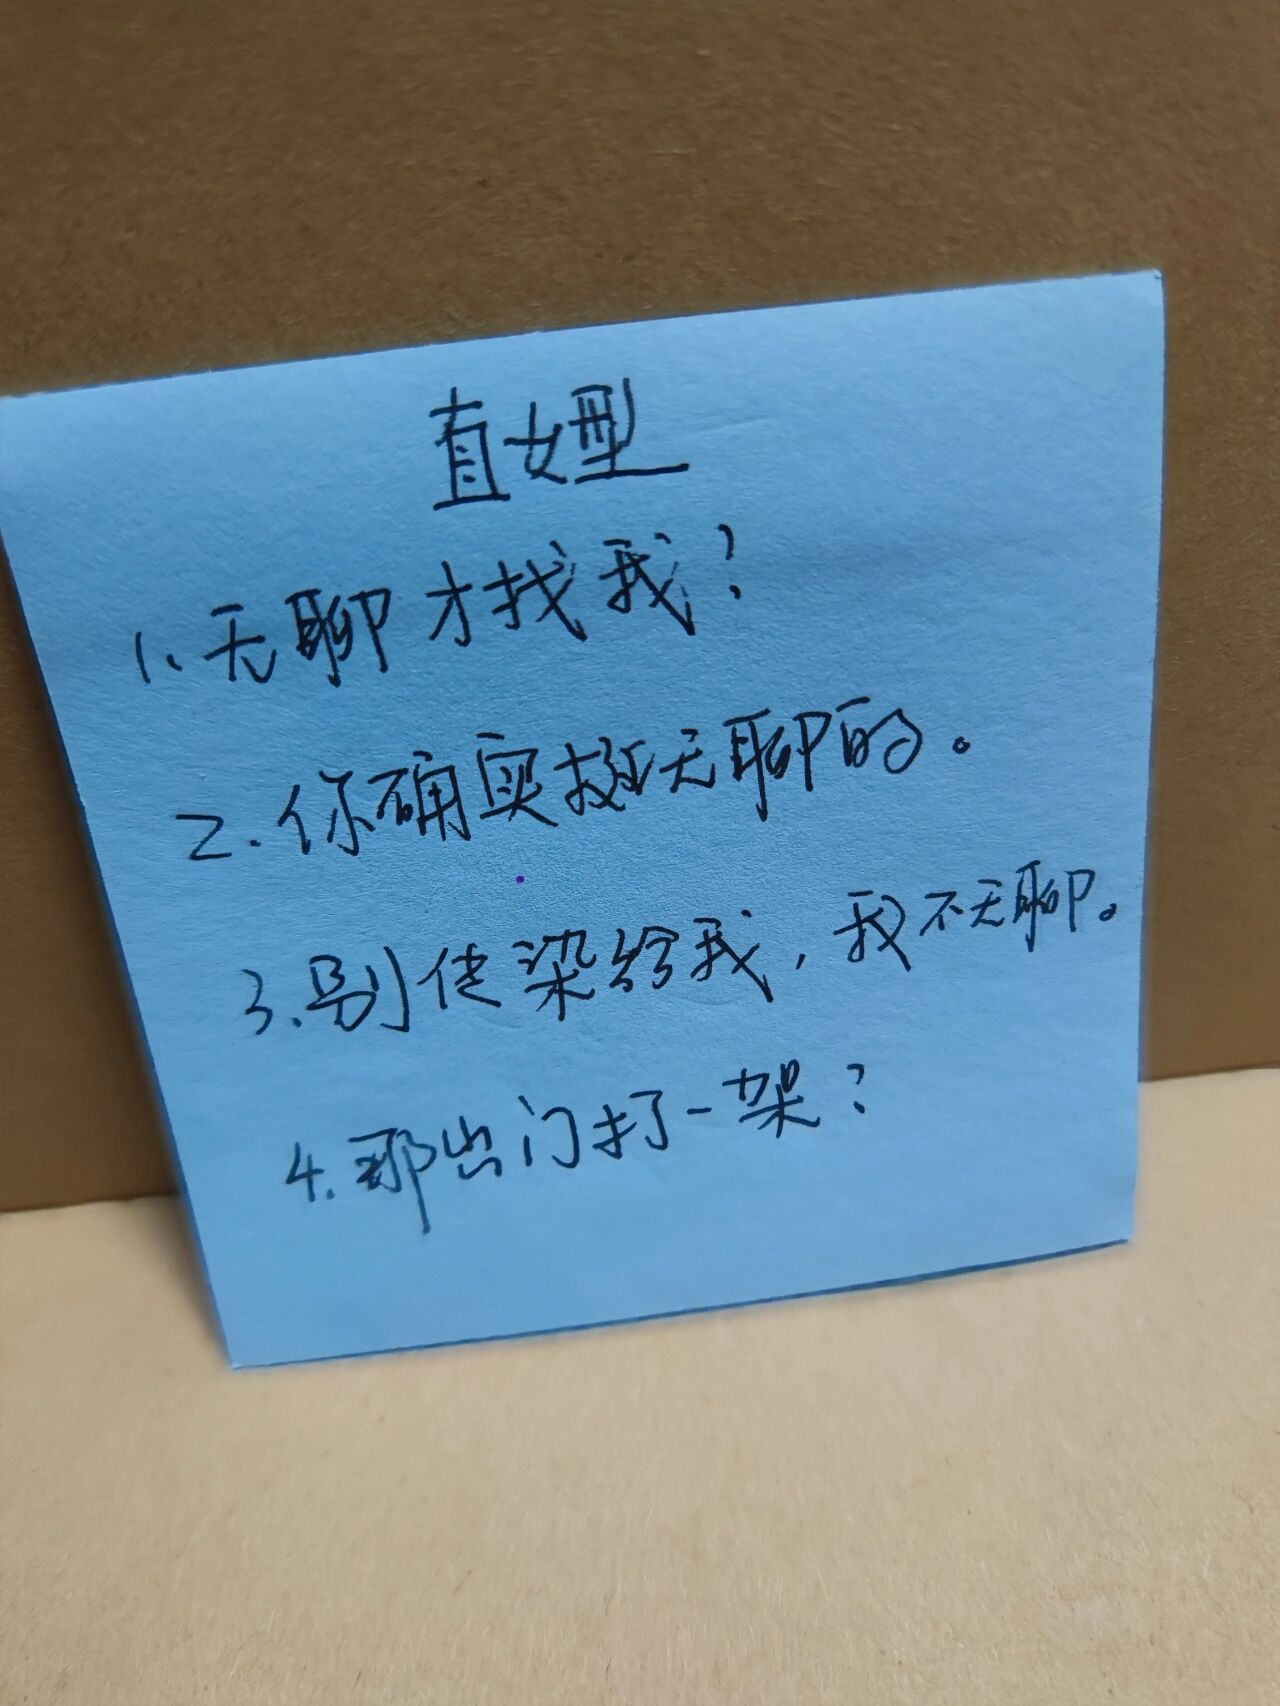 直女型
1.无聊才找我?
2.你确实挺无聊的。
3.别传染给我,我不无聊。
4.那出门打一架?